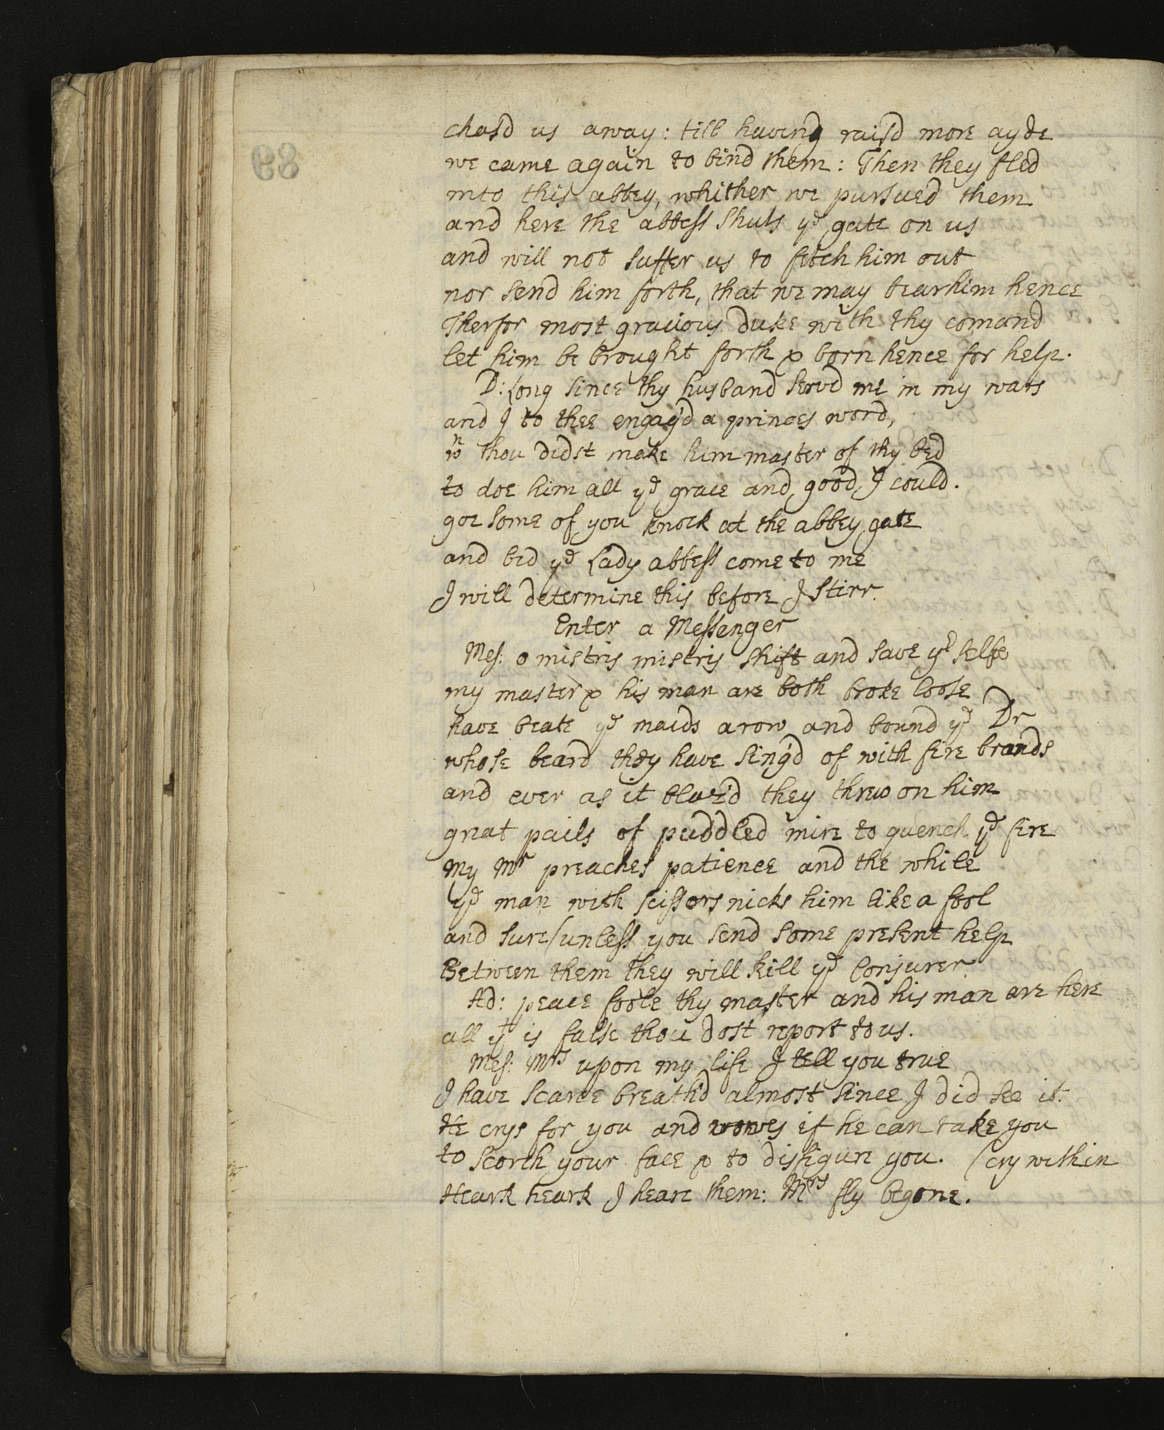 chasd us away: till having raisd more ayde
we came again to bind them: Then they fled
into this abbey, whither we pursued them
and here the abbess shuts ye gate on us
and will not suffer us to fetch him out
nor send him forth, that we may bear him hence
Therfor most gracious duke with thy comand
let him be brought forth & born hence for help.
D: Long since thy husband servd me in my wars
and I to thee engag'd a princes word,
wn thou didst make him master of thy bed
to doe him all ye grace and good I could.
goe some of you knock at the abbey gate
and bid ye Lady abbess come to me
I will determine this before I stirr.
Enter a Messenger
Mes: o mistris mistris shift and save yr selfe
my master & his man are both broke loose
have beate ye maids arow and bound ye Dr
whose beard they have sing'd of with fire brands
and ever as it blaz'd they threw on him
great pails of puddled mire to quench ye fire
My Mr preaches patience and the while
ye man with scissors nicks him like a fool
and sure (unless you send some present help
Between them they will kill ye Conjurer.
Ad: peace foole thy master and his man are here
all yt is false thou dost report to us.
Mes: Mrs upon my life I tell you true
I have scarce breath'd almost since I did see it.
He crys for you and vowes if he can take you
to scorch your face & to disfigure you. (cry within
Heark heark I heare them: Mrs fly begone.